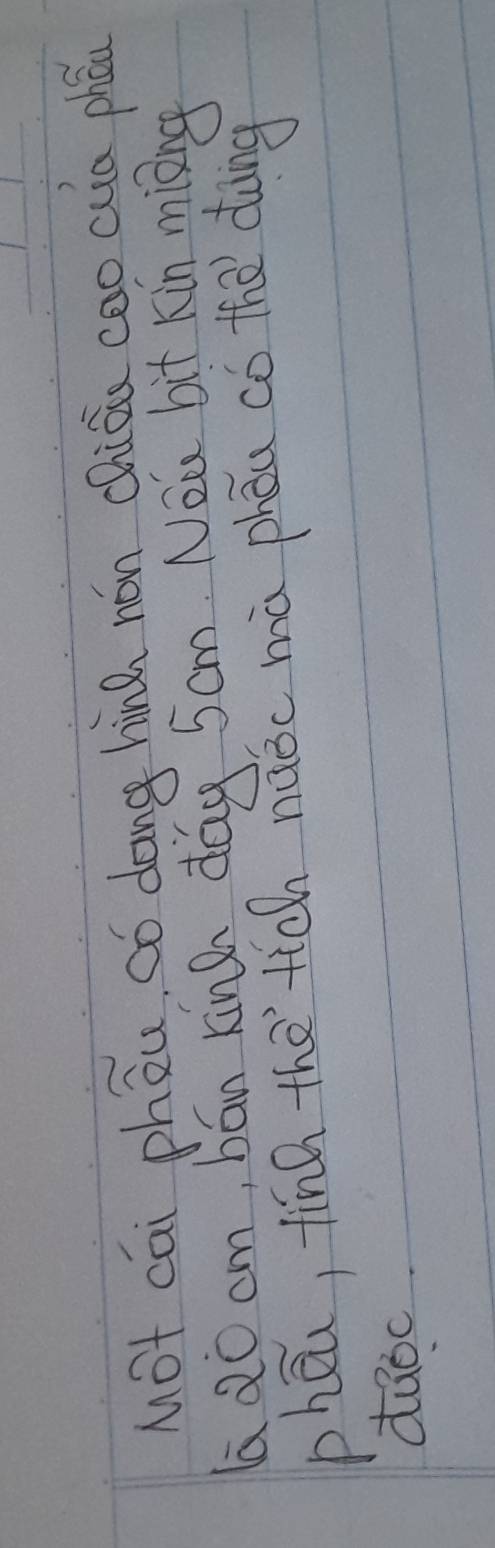 Một cái phễu có dạng hình nón chiều cao của phễu
là 20 cm, bán kính đáy 5cm. Nếu bịt kín miệng
phễu, tính thể tích nước mà phễu có thể đựng
được.